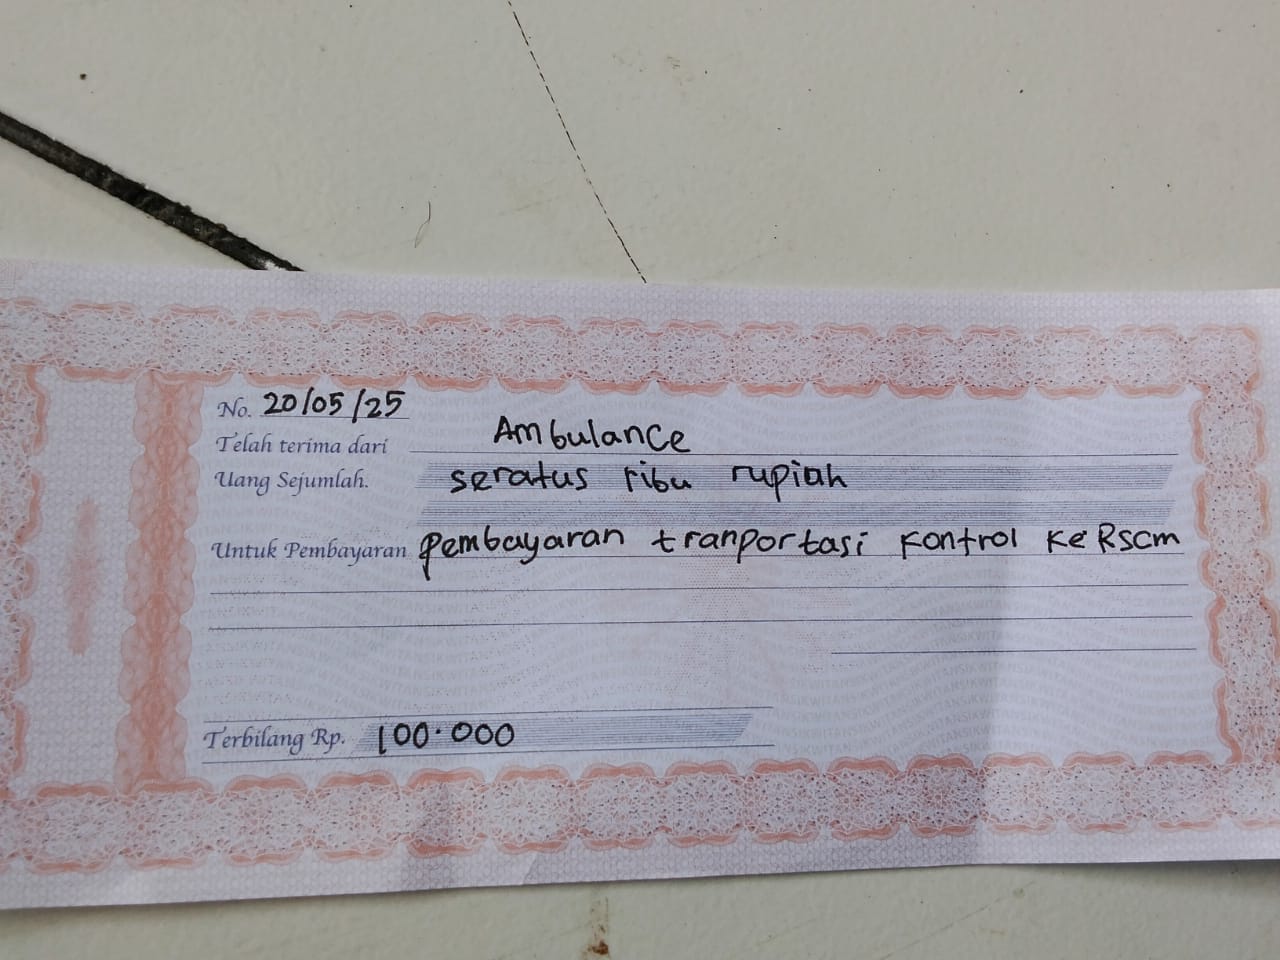 No. 20/05/25
Telah terima dari Ambulance
Uang Sejumlah. seratus ribu rupiah
Untuk Pembayaran pembayaran tranportasi kontrol ke Rscm
Terbilang Rp. 100.000